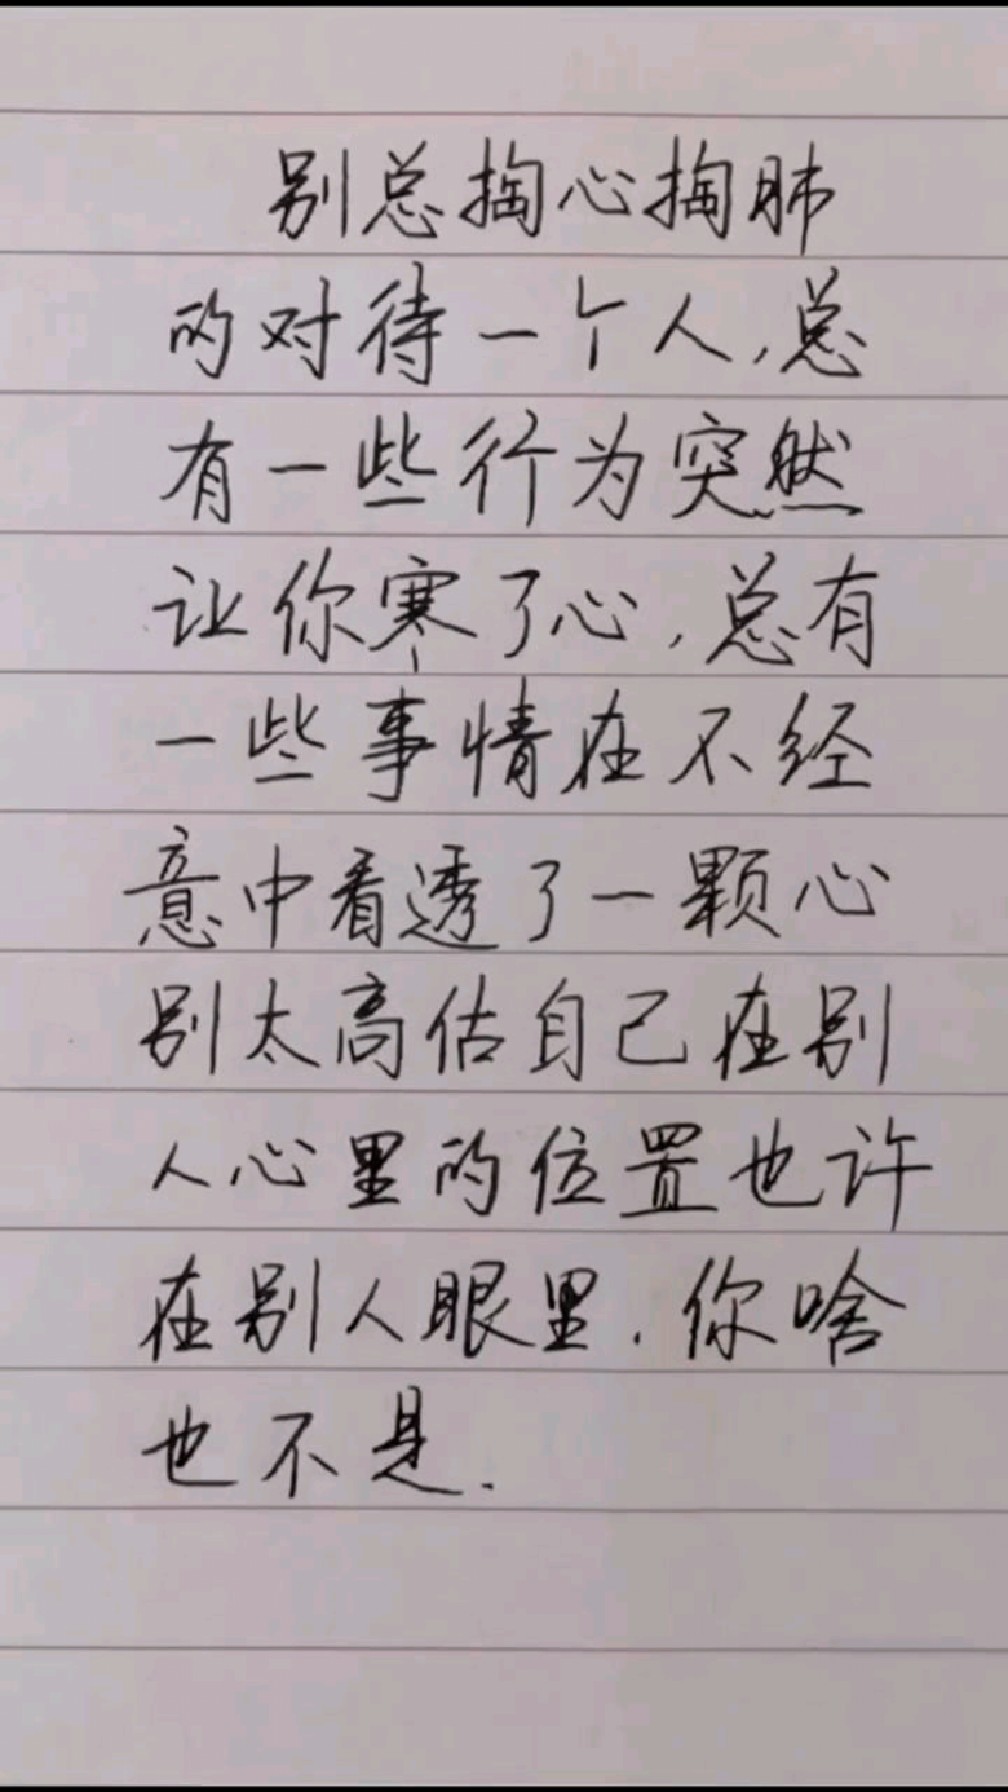 别总掏心掏肺
的对待一个人,总
有一些行为突然
让你寒了心,总有
一些事情在不经
意中看透了一颗心
别太高估自己在别
人心里的位置也许
在别人眼里.你啥
也不是.